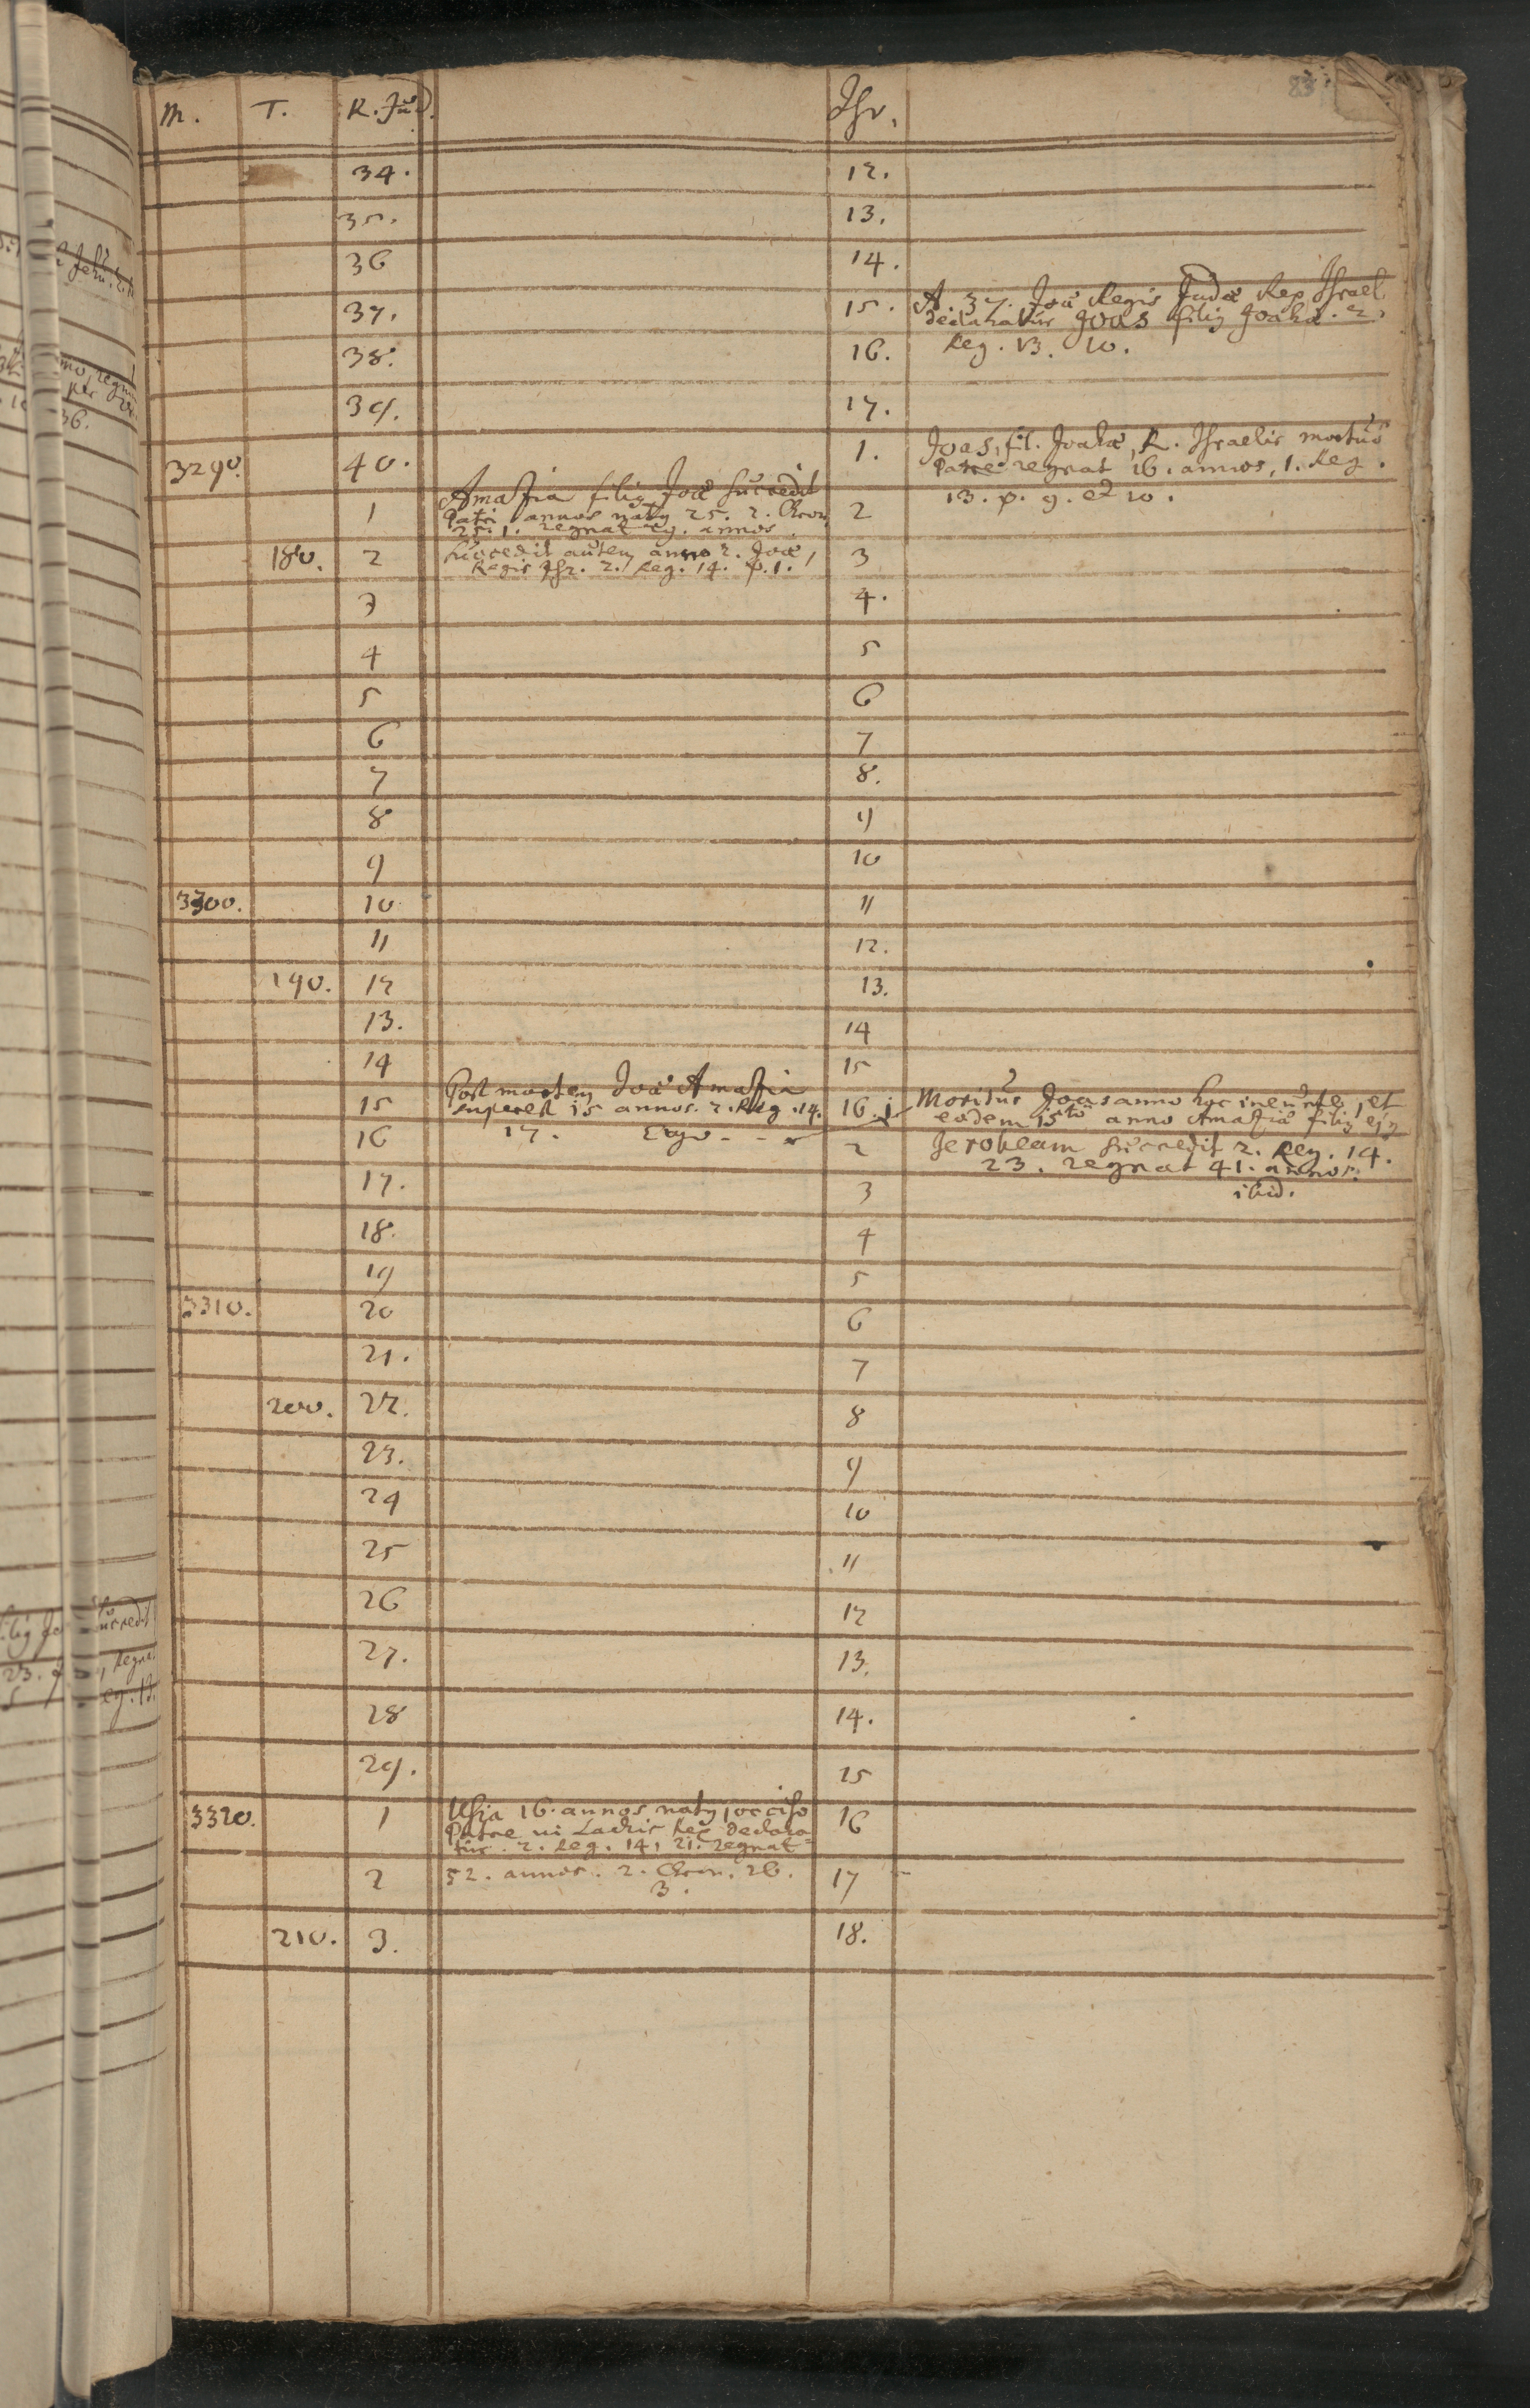 83
M. T. R. Jud. Isr.
34. 12.
35. 13.
36 14.
37. 15. A. 37. Joæ Regis Judæ Rex Israel
declaratur Joas filig Joahæ. 2.
38. 16. Reg. 13. 10.
39. 17.
3290. 40. 1. Joas, fil. Joahæ, R. Israelis mortuo
Patre regnat 16. annos, 1. Reg.
13. p. 9. et 10.
Amasia filig Joæ succedit
1 Patri annos natg 25. 2. Chron. 2
25. 1. regnat 29. annos.
180. 2 succedit autem anno 2. Joæ, 3
Regis Isr. 2. Reg. 14. p. 1.
3 4.
4 5
5 6
6 7
7 8.
8 9
9 10
3300. 10 11
11 12.
190. 12 13.
13. 14
14 15
Post mortem Joæ Amasia
15 superest 15 annos. 2. Reg. 14. 16. 1 Moritur Joas anno hoc ineunte, et
eodem 15to anno Amasiæ filig ejg
16 17. Ergo - - 2 Jerobeam succedit 2. Reg. 14.
23. regnat 41. annos.
17. 3 ibid.
18. 4
19 5
3310. 20 6
21. 7
200. 22. 8
23. 9
24 10
25 11
26 12
27. 13.
28 14.
29. 15
3320. 1 Usia 16. annos natg, occiso 16
Patre in Lachis Rex declara
tur. 2. Reg. 14, 21. regnat
2 52. annos. 2. Chron. 26. 17
3.
210. 3. 18.